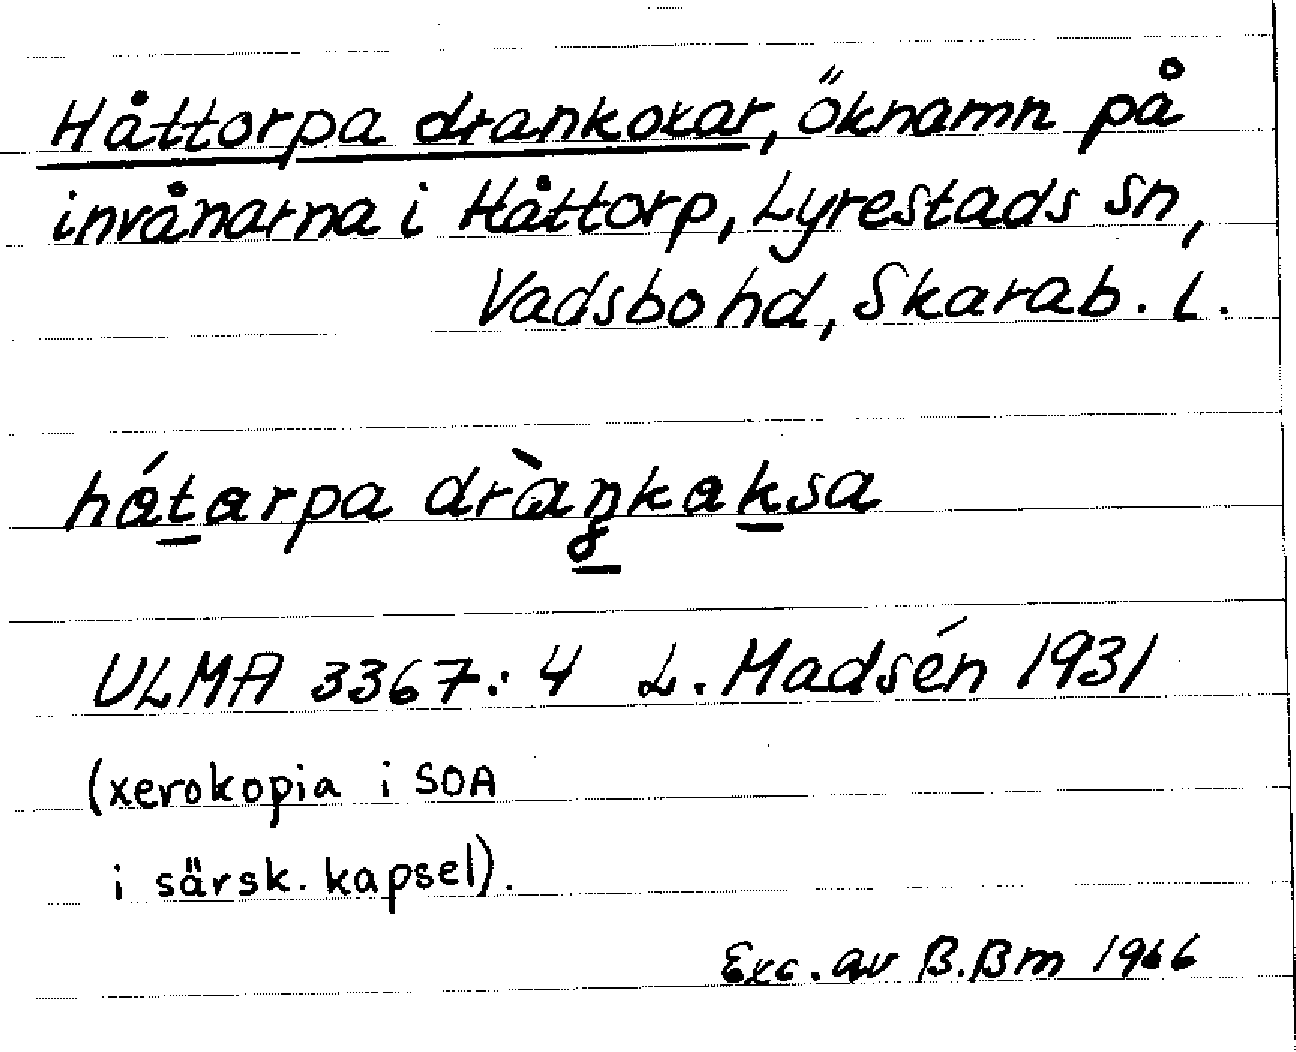 Håttorpa drankoxar, öknamn på
invånarna i Håttorp, Lyrestads sn,
Vadsbo hd, Skarab. l.
hátarpa dràŋkaksa
ULMA 3367:4 L. Madsén 1931
(xerokopia i SOA
i särsk. kapsel).
Exc. av B.Bm 1966